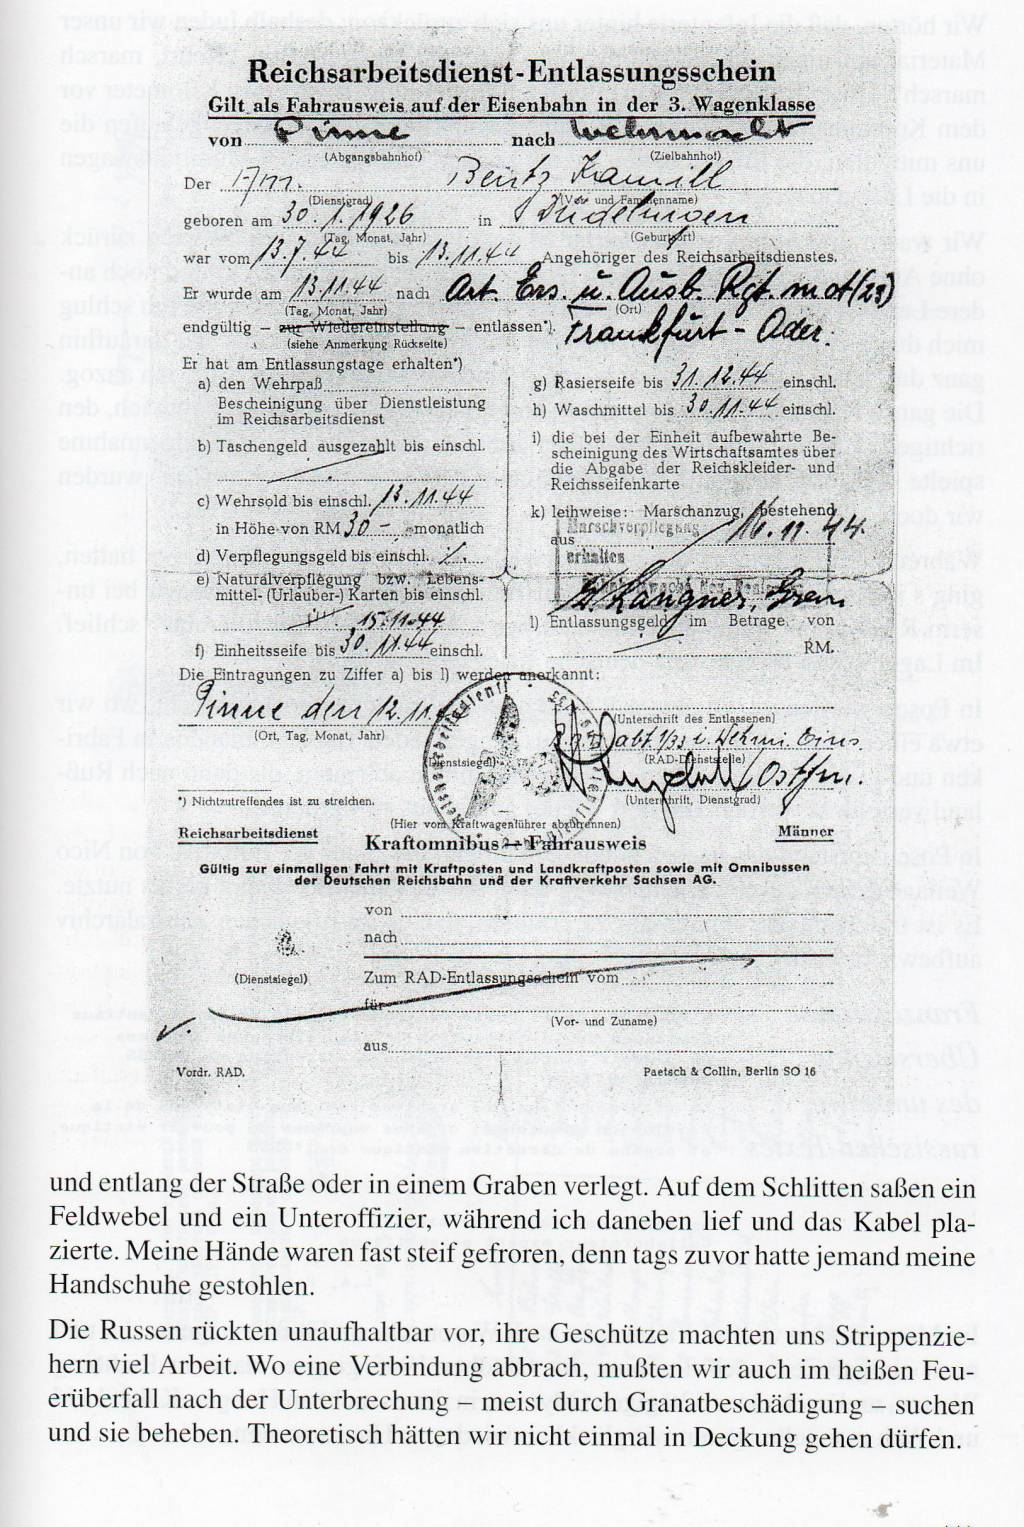 Reichsarbeitsdienst-Entlassungsschein
Gilt als Fahrausweis auf der Eisenbahn in der 3. Wagenklasse
von Pinne nach Wehrmacht
(Abgangsbahnhof) (Zielbahnhof)
Der Am. Bentz Kamill
(Dienstgrad) (Vor- und Familienname)
geboren am 30.1.1926 in Düdelingen
(Tag, Monat, Jahr) (Geburtsort)
war vom 13.7.44 bis 13.11.44 Angehöriger des Reichsarbeitsdienstes.
Er wurde am 13.11.44 nach Art. Ers. u. Ausb. Rgt. mot (23)
(Tag, Monat, Jahr) (Ort)
endgültig – zur Wiedereinstellung – entlassen*). Frankfurt - Oder.
(siehe Anmerkung Rückseite)
Er hat am Entlassungstage erhalten*)
a) den Wehrpaß
Bescheinigung über Dienstleistung
im Reichsarbeitsdienst
b) Taschengeld ausgezahlt bis einschl.
c) Wehrsold bis einschl. 13.11.44
in Höhe von RM 30 – monatlich
d) Verpflegungsgeld bis einschl.
e) Naturalverpflegung bzw. Lebens-
mittel- (Urlauber-) Karten bis einschl.
15.11.44
f) Einheitsseife bis 30.11.44 einschl.
g) Rasierseife bis 31.12.44 einschl.
h) Waschmittel bis 30.11.44 einschl.
i) die bei der Einheit aufbewahrte Be-
scheinigung des Wirtschaftsamtes über
die Abgabe der Reichskleider- und
Reichsseifenkarte
k) leihweise: Marschanzug, bestehend
aus
Marschverpflegung 16.11.44
erhalten
Langner,
l) Entlassungsgeld im Betrage von
RM.
Die Eintragungen zu Ziffer a) bis l) werden anerkannt:
Pinne den 12.11.
(Ort, Tag, Monat, Jahr)
(Unterschrift des Entlassenen)
(Dienstsiegel)
(RAD-Dienststelle)
*) Nichtzutreffendes ist zu streichen.
(Unterschrift, Dienstgrad)
(Hier vom Kraftwagenführer abzutrennen)
Reichsarbeitsdienst Männer
Kraftomnibus — Fahrausweis
Gültig zur einmaligen Fahrt mit Kraftposten und Landkraftposten sowie mit Omnibussen
der Deutschen Reichsbahn und der Kraftverkehr Sachsen AG.
von
nach
(Dienstsiegel) Zum RAD-Entlassungsschein vom
für
(Vor- und Zuname)
aus
Vordr. RAD. Paetsch & Collin, Berlin SO 16
und entlang der Straße oder in einem Graben verlegt. Auf dem Schlitten saßen ein
Feldwebel und ein Unteroffizier, während ich daneben lief und das Kabel pla-
zierte. Meine Hände waren fast steif gefroren, denn tags zuvor hatte jemand meine
Handschuhe gestohlen.
Die Russen rückten unaufhaltbar vor, ihre Geschütze machten uns Strippenzie-
hern viel Arbeit. Wo eine Verbindung abbrach, mußten wir auch im heißen Feu-
erüberfall nach der Unterbrechung – meist durch Granatbeschädigung – suchen
und sie beheben. Theoretisch hätten wir nicht einmal in Deckung gehen dürfen.